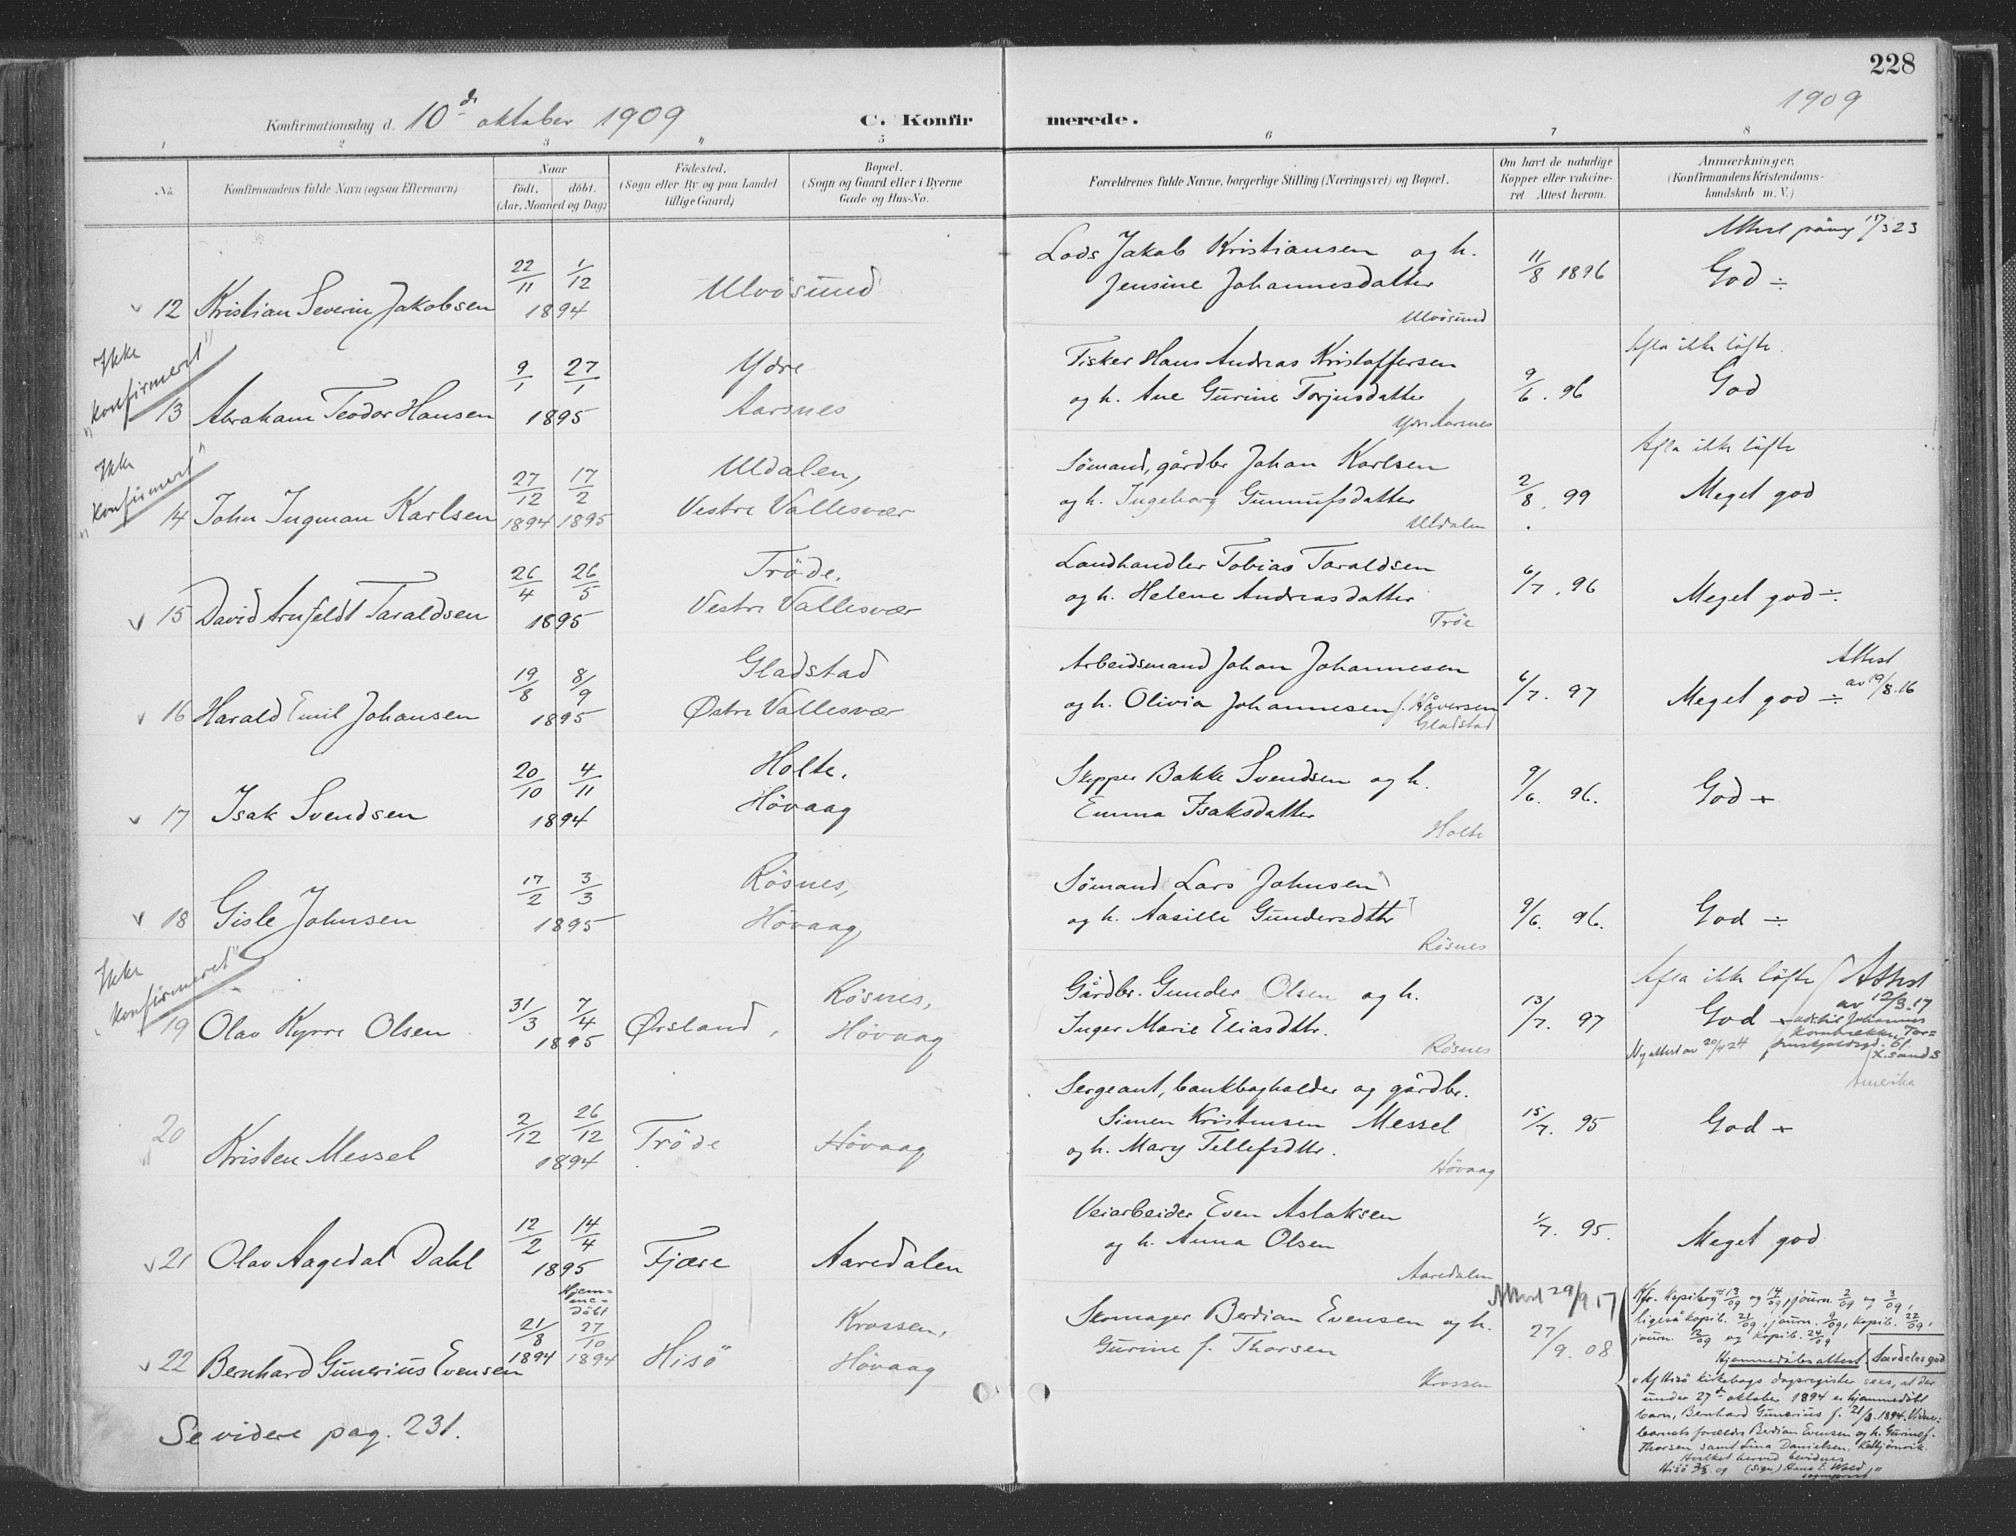 228
1909
Konfirmationsdag d. 10de oktober 1909
C. Konfirmerede.
1 2 3 4 5 6 7 8
No.
Konfirmandens fulde Navn (ogsaa Efternavn)
Naar
født. døbt.
(Aar, Maaned og Dag)
Fødested.
(Sogn eller By og paa Landet
tillige Gaard)
Bopæl.
(Sogn og Gaard eller i Byerne
Gade og Hus-No.
Forældrenes fulde Navne, borgerlige Stilling (Næringsvei) og Bopæl.
Om havt de naturlige
Kopper eller vakcine-
ret Attest herom.
Anmærkninger.
(Konfirmandens Kristendoms-
kundskab m. V.)
12 Kristian Severin Jakobsen
22/11 1/12
1894
Ulvøsund
Lods Jakob Kristiansen og h.
Jensine Johannesdatter
Ulvøsund
11/8 1896
Attest påny 17/3 23
God ÷
"Ikke
konfirmeret"
13 Abraham Teodor Hansen
9/1 27/1
1895
Ydre
Aarsnes
Fisker Hans Andreas Kristoffersen
og h. Ane Gurine Torjusdatter
Ydre Aarsnes
9/6. 96
Afla ikke løfte.
God
"Ikke
konfirmeret"
14 John Ingman Karlsen
27/12 17/2
1894 1895
Uldalen,
Vestre Vallesvær
Sømand, gårdbr Johan Karlsen
og h. Ingeborg Gunnufsdatter
Uldalen
2/8. 99
Afla ikke løfte
Meget god
15 David Arnfeldt Taraldsen
26/4 26/5
1895
Trøde.
Vestre Vallesvær
Landhandler Tobias Taraldsen
og h. Helene Andreasdatter
Trøe
6/7. 96
Meget god ÷
16 Harald Emil Johansen
19/8 8/9
1895
Gladstad
Østre Vallesvær
Arbeidsmand Johan Johannesen
og h. Olivia Johannesen f. Håversen
Gladstad
6/7. 97
Attest
av 19/8.16
Meget god ÷
17 Isak Svendsen
20/10 4/11
1894
Holte.
Høvaag
Skipper Bakke Svendsen og h.
Emma Isaksdatter
Holte
9/6. 96.
God ÷
18 Gisle Johnsen
17/2 3/3
1895
Røsnes,
Høvaag
Sømand Lars Johnsen
og h. Aasille Gundersdttr
Røsnes
9/6. 96.
God ÷
"Ikke
konfirmeret"
19 Olav Kyrre Olsen
31/3 7/4
1895
Ørsland,
Røsnes,
Høvaag
Gårdbr. Gunder Olsen og h.
Inger Marie Eliasdttr.
Røsnes
13/7. 97
Afla ikke løfte
Attest
av 12/3.17
God
Ny attest av 20/1 24
X.sand S
Amerika
20
Kristen Messel
2/12 26/12
1894
Trøde
Høvaag
Sergeant, bankbogholder og gårdbr.
Simen Kristensen Messel
og h. Mary Tellefsdttr.
Høvaag
15/7. 95
God ÷
21 Olav Aagedal Dahl
12/2 14/4
1895
Fjære
Aaredalen
Veiarbeider Even Aslaksen
og h. Anna Olsen
Aaredalen
1/7. 95.
Meget god
22 Bernhard Gunerius Evensen
Hjem-
me-
døbt
21/8 27/10
1894 1894
Hisø
Krossen,
Høvaag
Skomager Berdian Evensen og h.
Gurine f. Thorsen
Krossen
Attest 29/9 17
27/9. 08
Kfr. kopibog 13/09 og 14/09, journ. 2/09 og 3/09,
ligeså kopib. 21/09, journ. 9/09, kopib. 22/09,
journ. 12/09 og kopib. 24/09
Særdeles god
Hjemmedåbsattest.
"Af Hisø kirkebogs dagsregister sees, at der
under 27de oktober 1894 er hjemmedøbt
barn, Bernhard Gunerius f. 21/8.1894. Vidne:
barnets forældre Berdian Evensen og h. Gurine f.
Thorsen samt Lina Danielsen, Kolbjørnvik.
Hvilket herved bevidnes
Hisø 09 (sign) Hans E. Wold
sogneprest"
Se videre pag. 231.